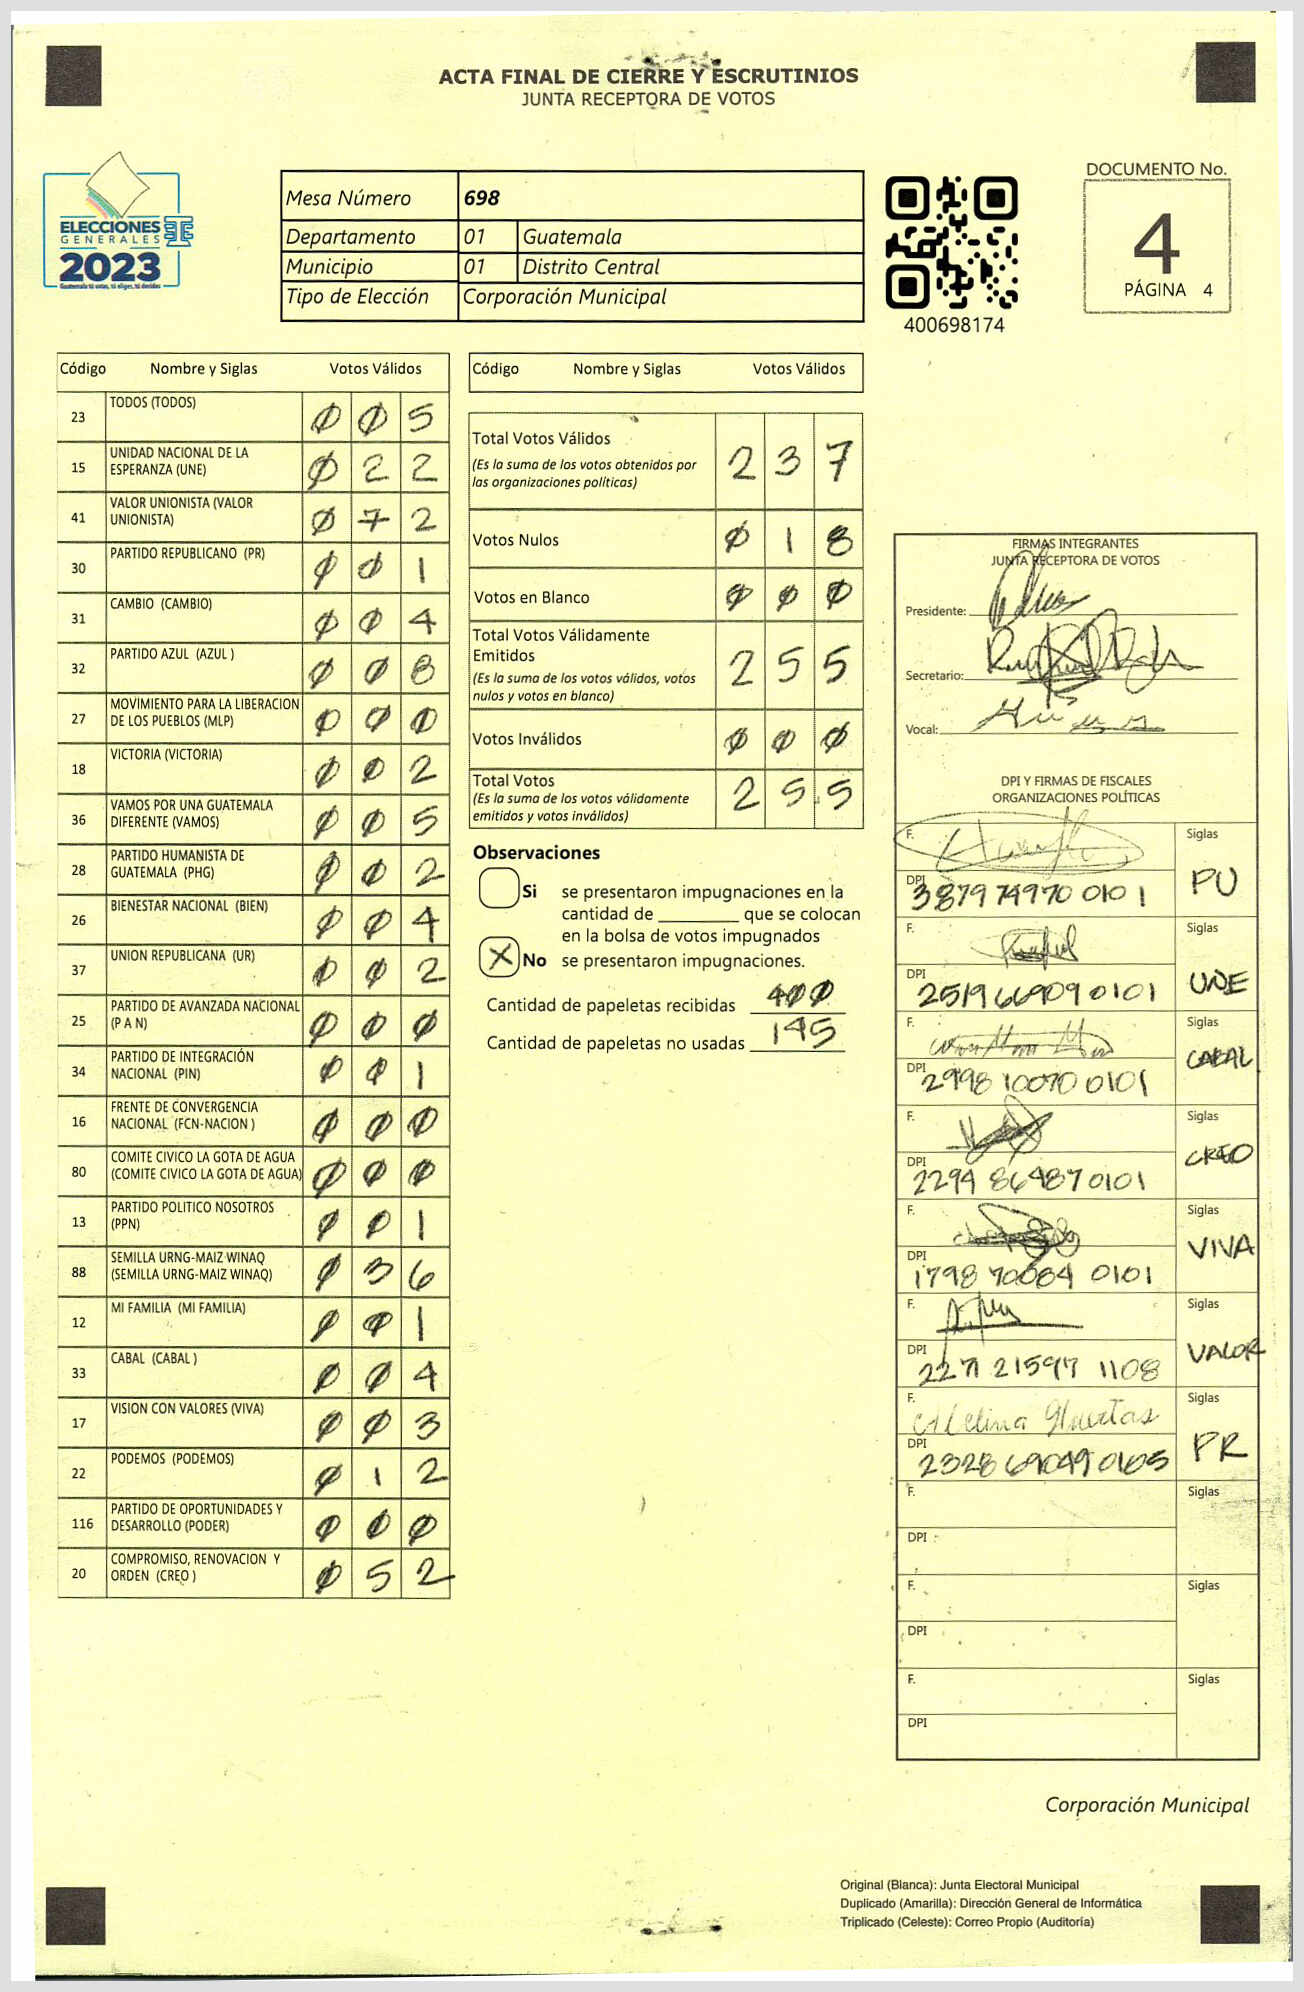 ACTA FINAL DE CIERRE Y ESCRUTINIOS
JUNTA RECEPTORA DE VOTOS
ELECCIONES
GENERALES
2023
Guatemala tú votas, tú eliges, tú decides
Mesa Número 698
Departamento 01 Guatemala
Municipio 01 Distrito Central
Tipo de Elección Corporación Municipal
400698174
DOCUMENTO No.
4
PÁGINA 4
Código Nombre y Siglas Votos Válidos
23 TODOS (TODOS) 0 0 5
15 UNIDAD NACIONAL DE LA
ESPERANZA (UNE) 0 2 2
41 VALOR UNIONISTA (VALOR
UNIONISTA) 0 7 2
30 PARTIDO REPUBLICANO (PR) 0 0 1
31 CAMBIO (CAMBIO) 0 0 4
32 PARTIDO AZUL (AZUL ) 0 0 8
27 MOVIMIENTO PARA LA LIBERACION
DE LOS PUEBLOS (MLP) 0 0 0
18 VICTORIA (VICTORIA) 0 0 2
36 VAMOS POR UNA GUATEMALA
DIFERENTE (VAMOS) 0 0 5
28 PARTIDO HUMANISTA DE
GUATEMALA (PHG) 0 0 2
26 BIENESTAR NACIONAL (BIEN) 0 0 4
37 UNION REPUBLICANA (UR) 0 0 2
25 PARTIDO DE AVANZADA NACIONAL
(P A N) 0 0 0
34 PARTIDO DE INTEGRACIÓN
NACIONAL (PIN) 0 0 1
16 FRENTE DE CONVERGENCIA
NACIONAL (FCN-NACION ) 0 0 0
80 COMITE CIVICO LA GOTA DE AGUA
(COMITE CIVICO LA GOTA DE AGUA) 0 0 0
13 PARTIDO POLITICO NOSOTROS
(PPN) 0 0 1
88 SEMILLA URNG-MAIZ WINAQ
(SEMILLA URNG-MAIZ WINAQ) 0 3 6
12 MI FAMILIA (MI FAMILIA) 0 0 1
33 CABAL (CABAL ) 0 0 4
17 VISION CON VALORES (VIVA) 0 0 3
22 PODEMOS (PODEMOS) 0 1 2
116 PARTIDO DE OPORTUNIDADES Y
DESARROLLO (PODER) 0 0 0
20 COMPROMISO, RENOVACION Y
ORDEN (CREO ) 0 5 2
Código Nombre y Siglas Votos Válidos
Total Votos Válidos 2 3 7
(Es la suma de los votos obtenidos por
las organizaciones políticas)
Votos Nulos 0 1 8
Votos en Blanco 0 0 0
Total Votos Válidamente
Emitidos 2 5 5
(Es la suma de los votos válidos, votos
nulos y votos en blanco)
Votos Inválidos 0 0 0
Total Votos 2 5 5
(Es la suma de los votos válidamente
emitidos y votos inválidos)
Observaciones
Si se presentaron impugnaciones en la
cantidad de ________ que se colocan
en la bolsa de votos impugnados
X No se presentaron impugnaciones.
Cantidad de papeletas recibidas 400
Cantidad de papeletas no usadas 145
FIRMAS INTEGRANTES
JUNTA RECEPTORA DE VOTOS
Presidente:
Secretario:
Vocal:
DPI Y FIRMAS DE FISCALES
ORGANIZACIONES POLÍTICAS
F. Siglas
DPI 387974970 0101 PU
F. Siglas
DPI 2519669090101 UNE
F. Siglas
DPI 2998 10070 0101 CABAL
F. Siglas
DPI 2294 86487 0101 CREO
F. Siglas
DPI 1798 70084 0101 VIVA
F. Siglas
DPI 2271 21597 1108 VALOR
F. Melina Huertas Siglas
DPI 2328 69049 0105 PR
F. Siglas
DPI
F. Siglas
DPI
F. Siglas
DPI
Corporación Municipal
Original (Blanca): Junta Electoral Municipal
Duplicado (Amarilla): Dirección General de Informática
Triplicado (Celeste): Correo Propio (Auditoría)